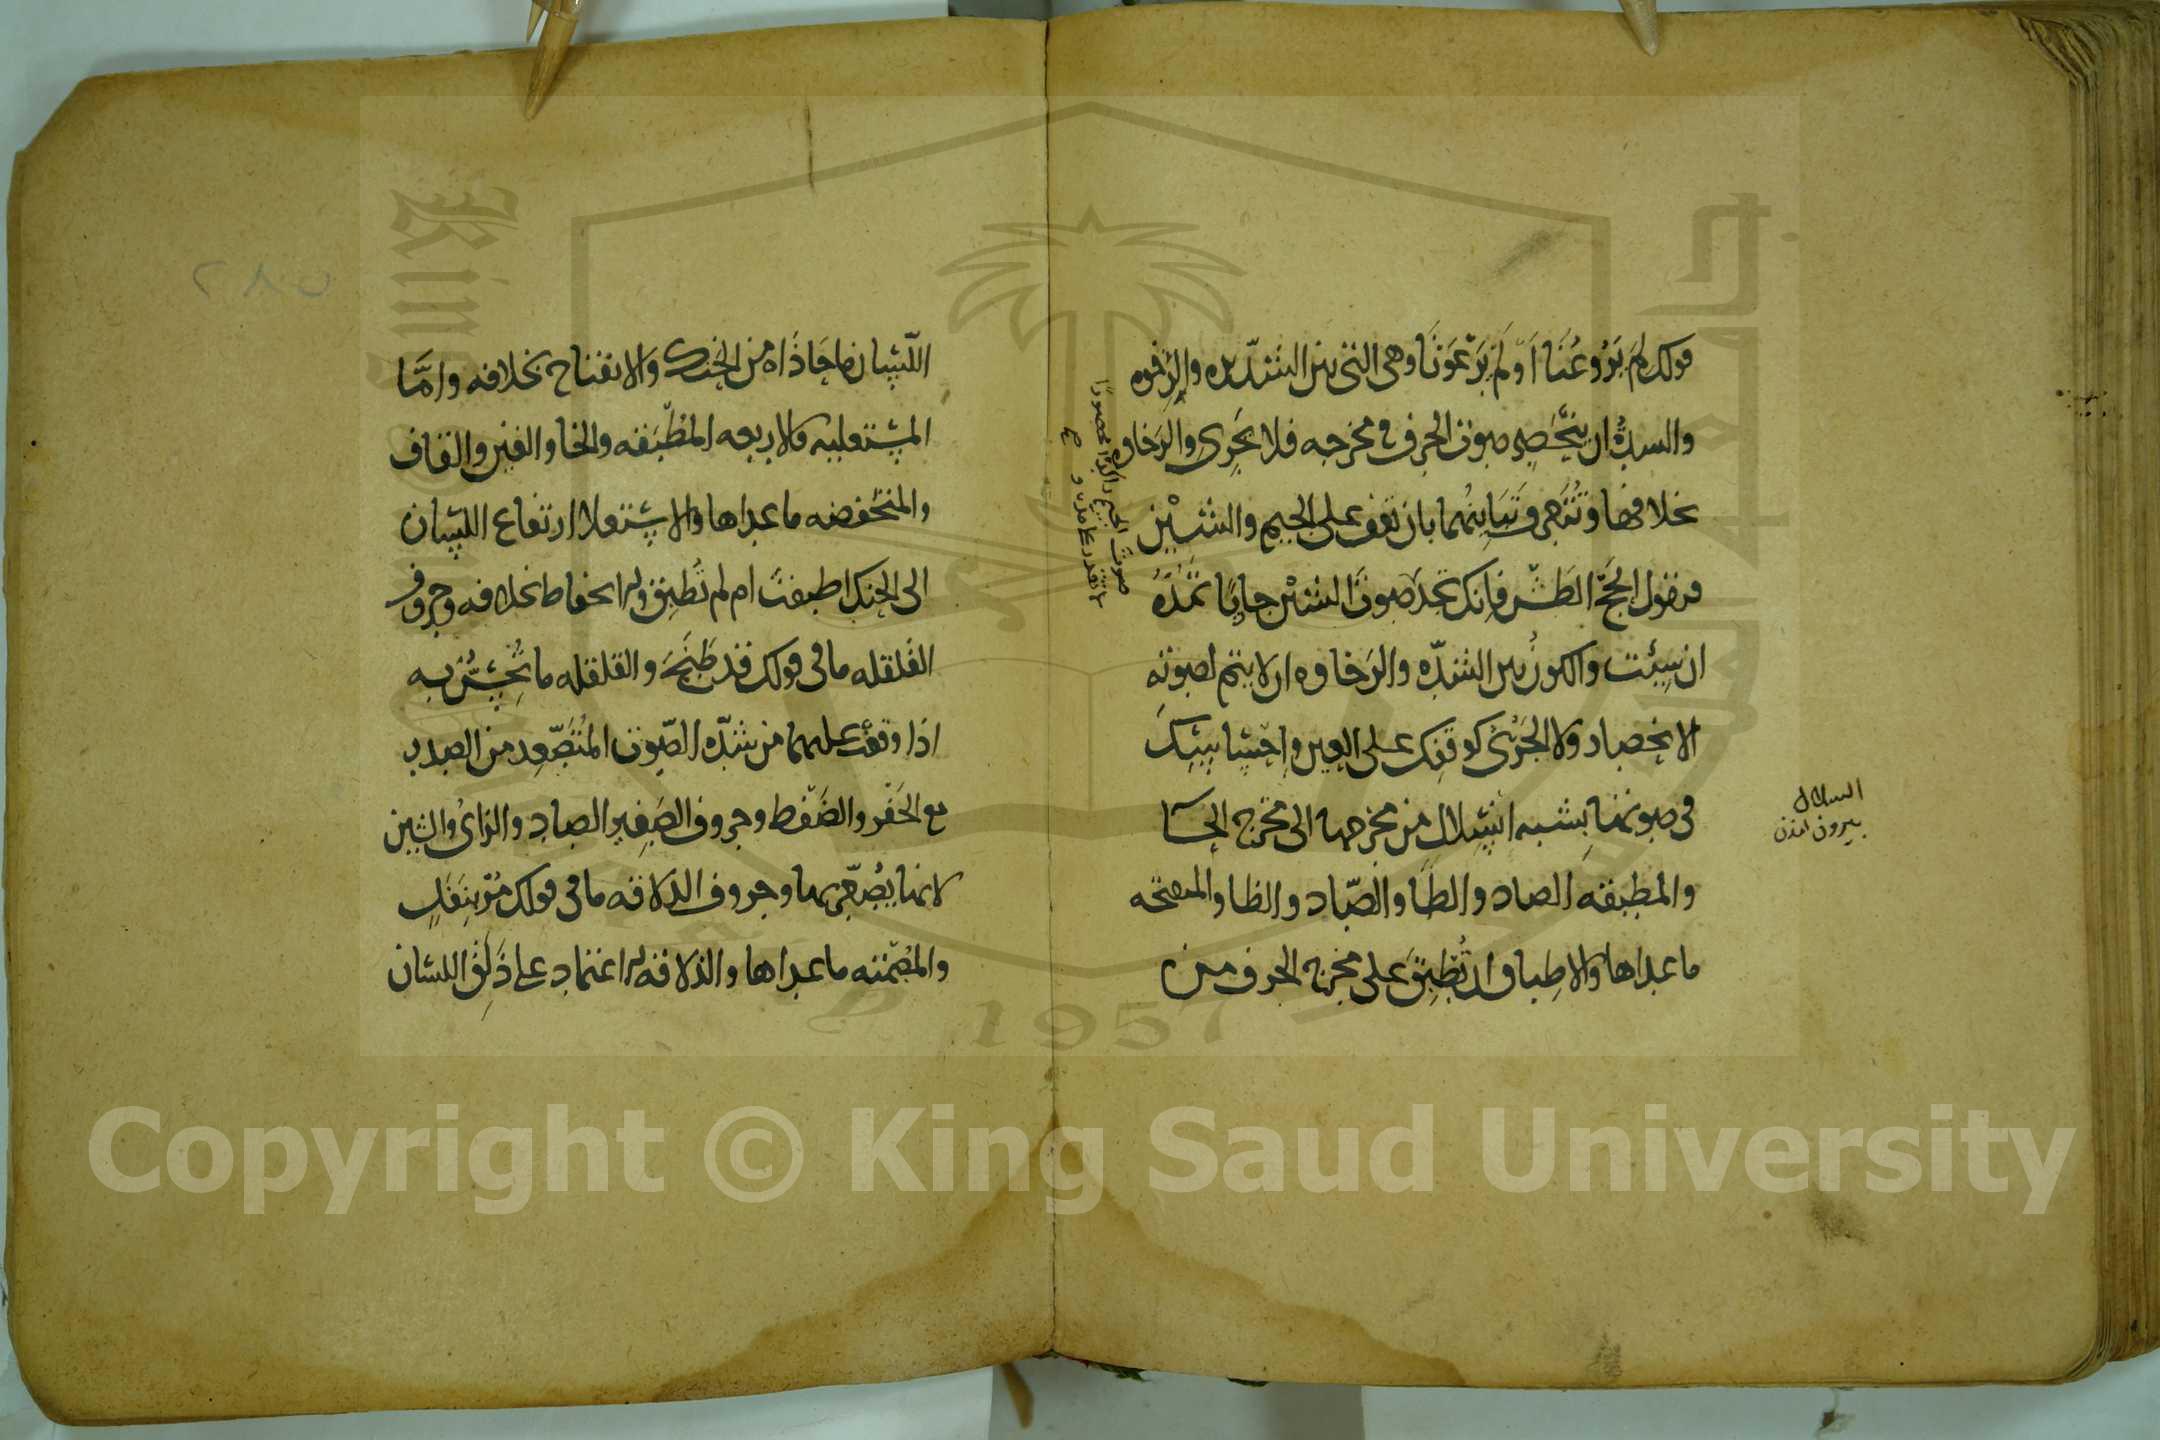 قولك لم يَرْوُعُنَا اَوْ لَمْ يَرْعَوْنَا وهى التى بين الشديده والرخوه
والشدة ان ينحصر صوت الحرف فى مخرجه فلا يجرى والرخاوه
بخلافها وتتعرف تباينهما بان تقف على الجيم والشين
فتقول الحَجّ الطَشّ فانك تجد صوت الشين جاريا تمدّه
ان شئت والكون بين الشدّه والرخاوه ان لا يتم لصوته
الانحصار ولا الجَرْىُ كوقفك على العين واحساسك
فى صوتها بشبه انسلال من مخرجها الى مخرج الحا
والمطبقه الصاد والطا والضاد والظا والمنفتحه
ما عداها والاطباق ان تُطبِقَ على مخرج الحرف من
صوت الجيم راكدا محصورا
لا تقدر على مدّه
انسلال
بيرون امدن
٢٨٥
اللسان ما حاذاه من الحنك والانفتاح بخلافه وامّا
المستعليه فالاربعه المطبقه والخا والغين والقاف
والمنخفضه ما عداها والاستعلا ارتفاع اللسان
الى الحنك اطبقت ام لم تُطبق والانخفاض بخلافه وحروف
القلقله ما فى قولك قد طَبَجَ والقلقله ما تُحِسُّ به
اذا وقفت عليها من شدّه الصّوت المُتَصَعِّد من الصدر
مع الحَفْز والضَغْط وحروف الصَفِير الصاد والزاى والسين
لانها يُصفَر بها وحروف الذلاقه ما فى قولك مُرْ بِنَفَلٍ
والمُصْمَته ما عداها والذلاقه الاعتماد على ذَلَق اللسان
Copyright © King Saud University
1957